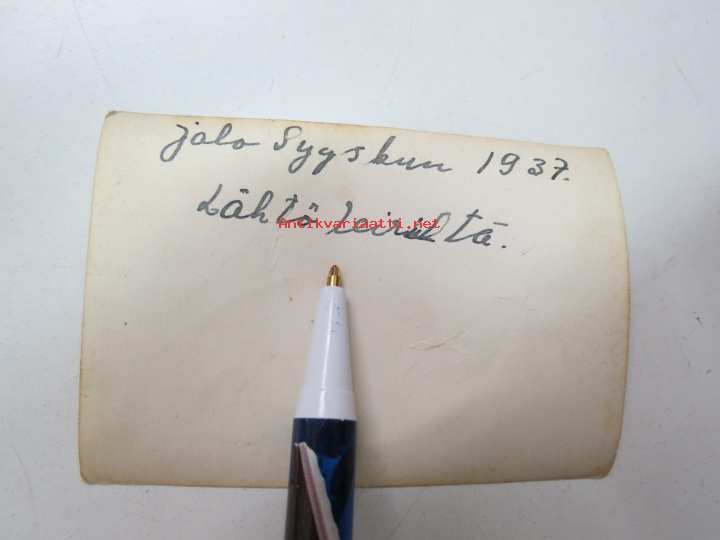 jalo Syyskun 1937.
Lähtö Leiriltä.
Antikvariaatti.net